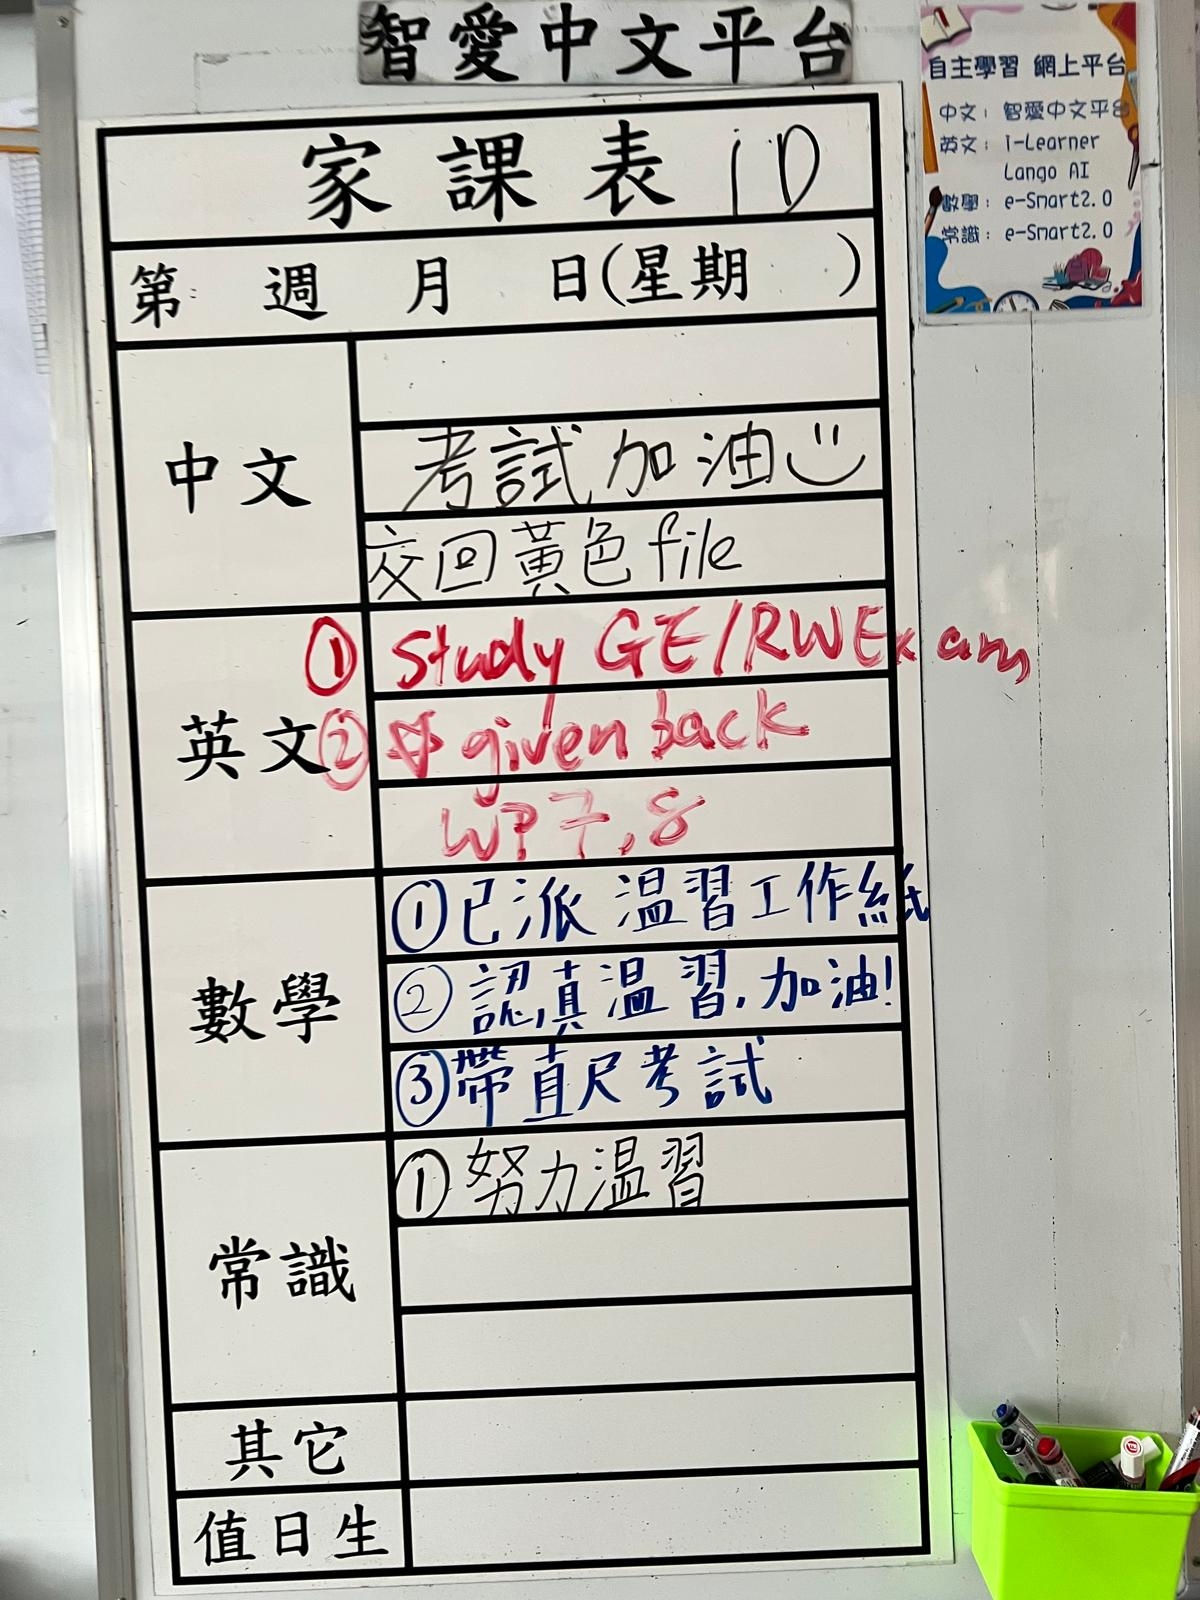 智愛中文平台
自主學習 網上平台
中文：智愛中文平台
英文：i-Learner
Lango AI
數學：e-Smart2.0
常識：e-Smart2.0
家課表 1D
第 週 月 日(星期 )
中文
考試加油
交回黃色file
英文
① Study GE/RW Exam
② given back
WP 7, 8
數學
①已派 溫習工作紙
②認真溫習，加油!
③帶直尺考試
常識
①努力溫習
其它
值日生